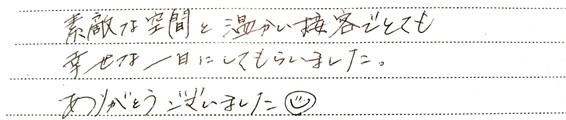 素敵な空間と温かい接客でとても
幸せな一日にしてもらいました。
ありがとうございました☺